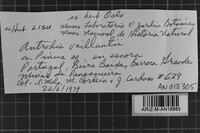 ex hub Oslo
ex Hub LISU, Museu Laboratório E Jardim Botânico
Museu Nacional de História Natural
Antrodia vaillantii
on Pinus sp. on escora
Portugal, Beira Baixa, Barroca Grande
Minas da Panasqueira
Col. I. Melo, M. Correia & J. Cardoso #629
26/6/1979
AN018305
ARIZ-M-AN18865